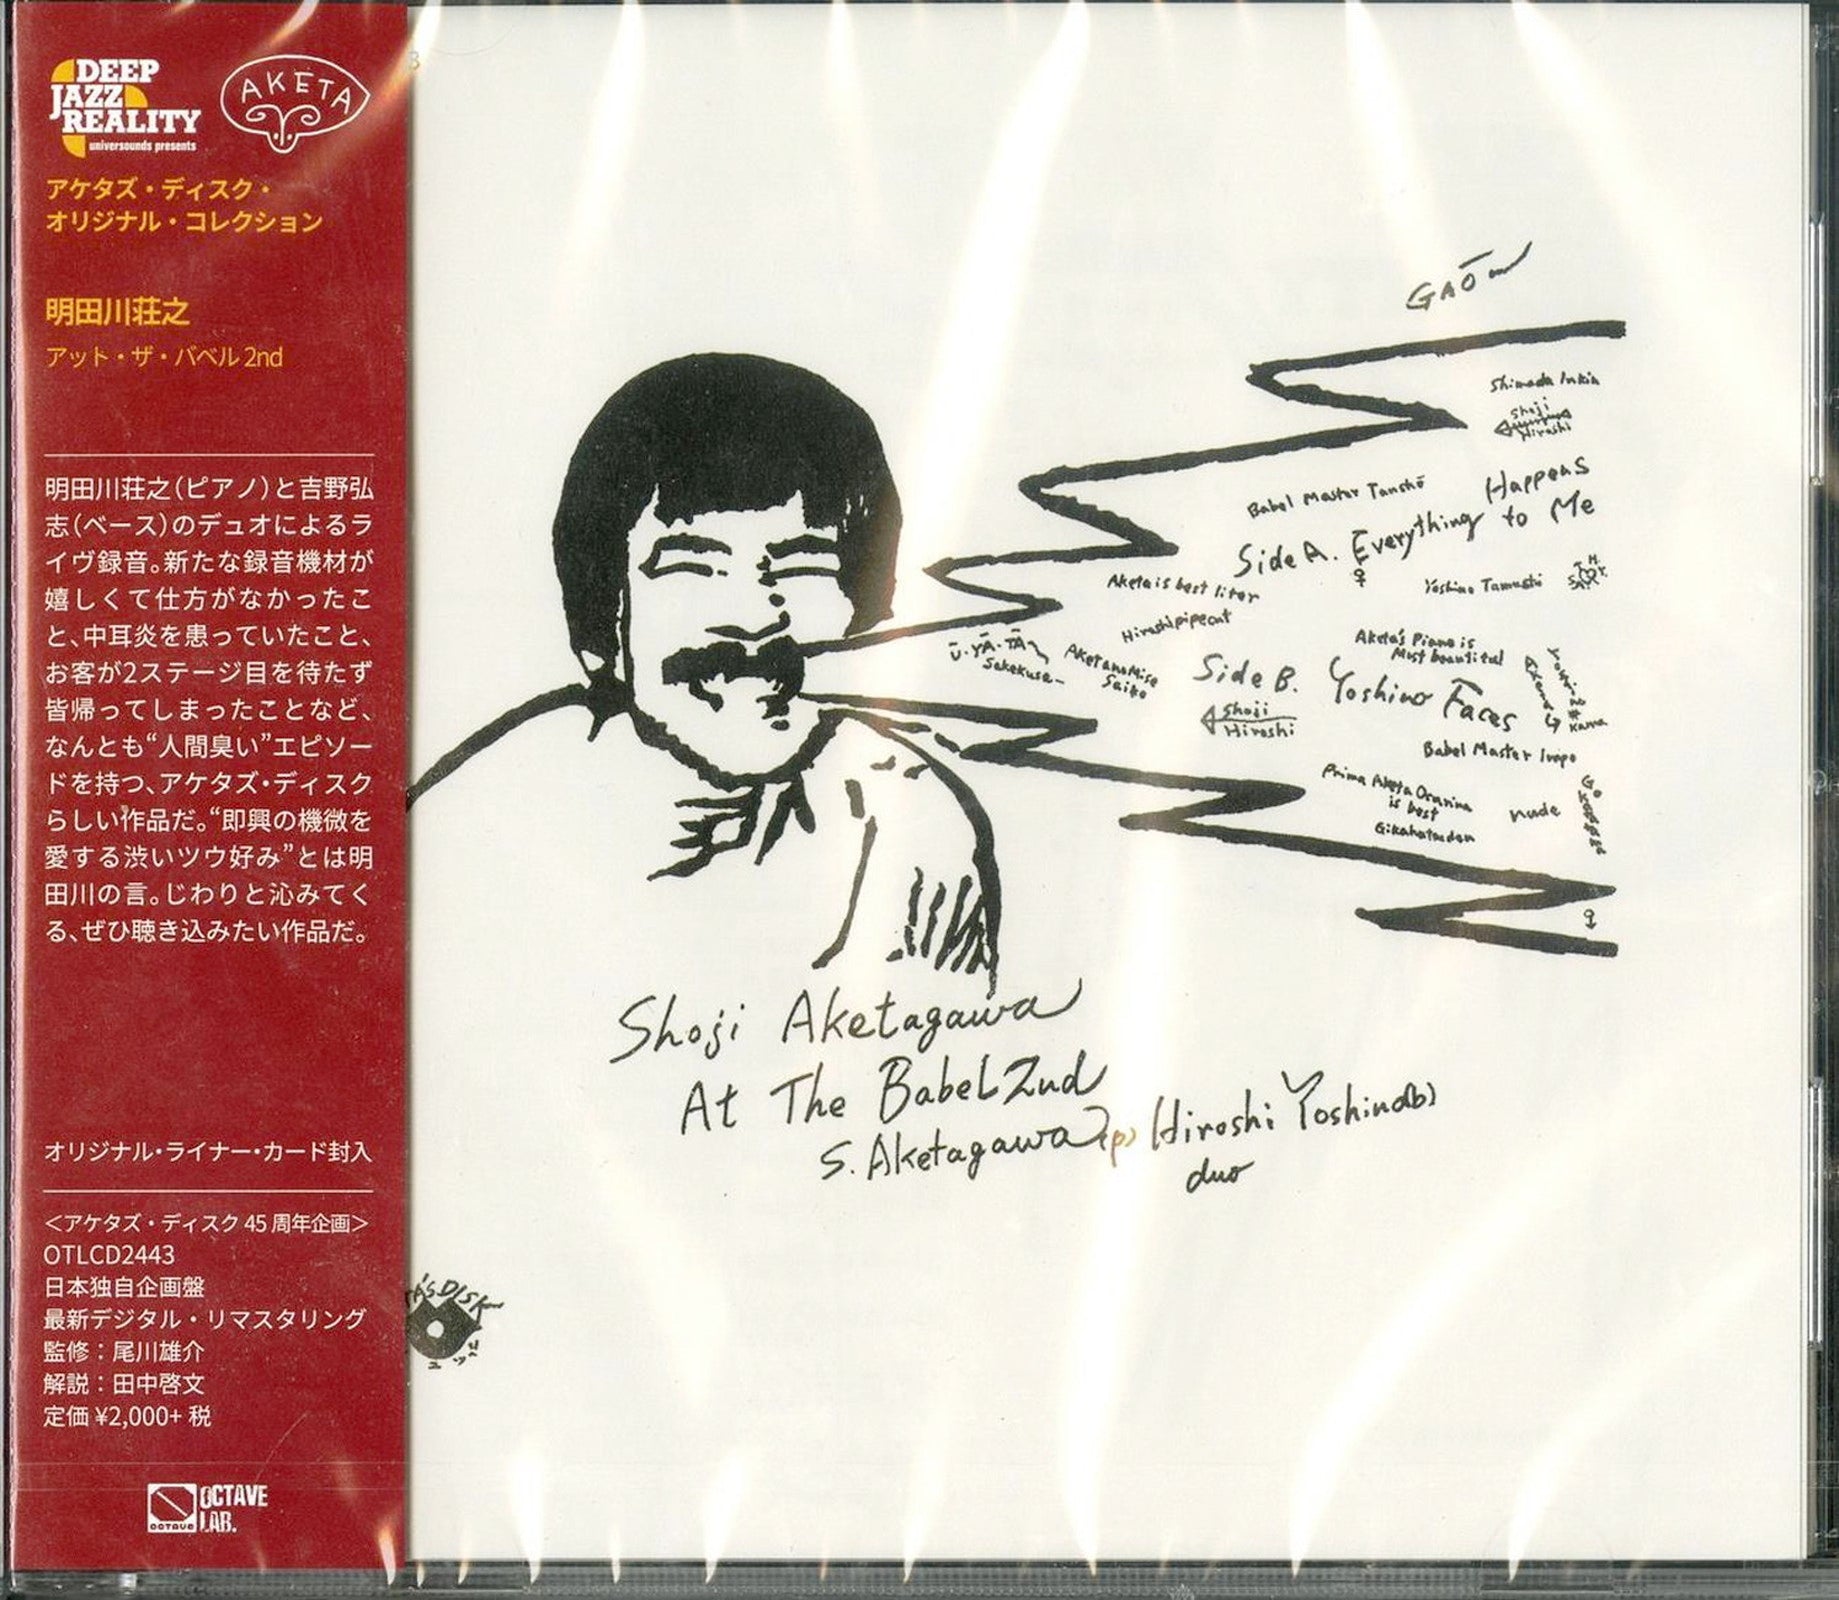 DEEP
JAZZ
REALITY
universounds presents
AKETA
アケタズ・ディスク・
オリジナル・コレクション
明田川荘之
アット・ザ・バベル 2nd
明田川荘之（ピアノ）と吉野弘
志（ベース）のデュオによるラ
イヴ録音。新たな録音機材が
嬉しくて仕方がなかったこ
と、中耳炎を患っていたこと、
お客が2ステージ目を待たず
皆帰ってしまったことなど、
なんとも“人間臭い”エピソー
ドを持つ、アケタズ・ディスク
らしい作品だ。“即興の機微を
愛する渋いツウ好み”とは明
田川の言。じわりと沁みてく
る、ぜひ聴き込みたい作品だ。
オリジナル・ライナー・カード封入
＜アケタズ・ディスク 45 周年企画＞
OTLCD2443
日本独自企画盤
最新デジタル・リマスタリング
監修：尾川雄介
解説：田中啓文
定価 ¥2,000+ 税
OCTAVE
OCTAVE
LAB.
GAŌ
Shimada
Shoji
Hiroshi
Babel Master Tanshō
Side A. Everything Happens
to Me
Aketa is best liter
Yoshino Tamashi
Hiroshi pipe cut
Ū・YĀ・TĀ
Sakekuse
Aketa no Mise
Saiko
Aketa's Piano is
Must beautiful
Side B. Yoshino Faces
Shoji
Hiroshi
Babel Master
Prima Aketa Ocarina
is best
nude
Shoji Aketagawa
At The Babel 2nd
S. Aketagawa (p) Hiroshi Yoshino(b)
duo
'S DISK